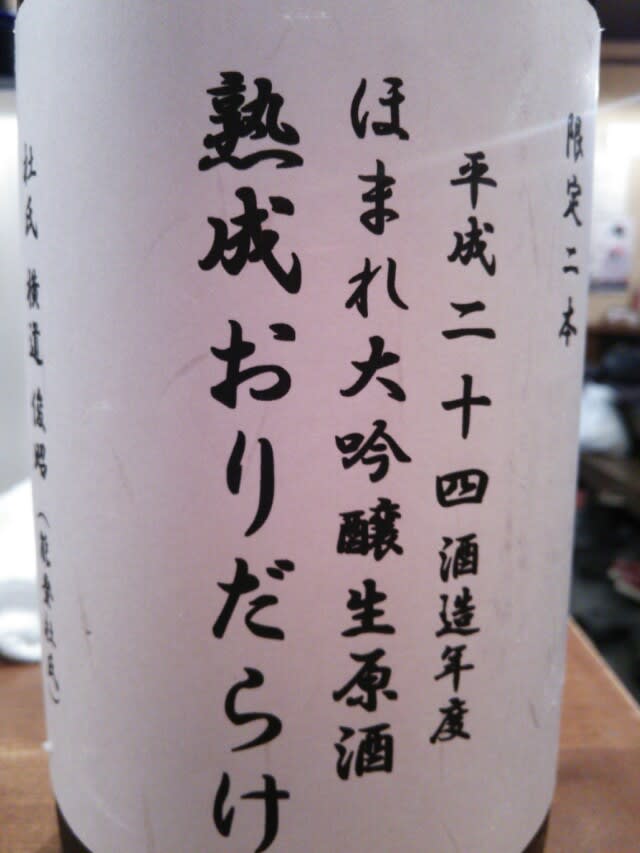 限定二本
平成二十四酒造年度
ほまれ大吟醸生原酒
熟成おりだらけ
杜氏 横道 俊昭（能登杜氏）